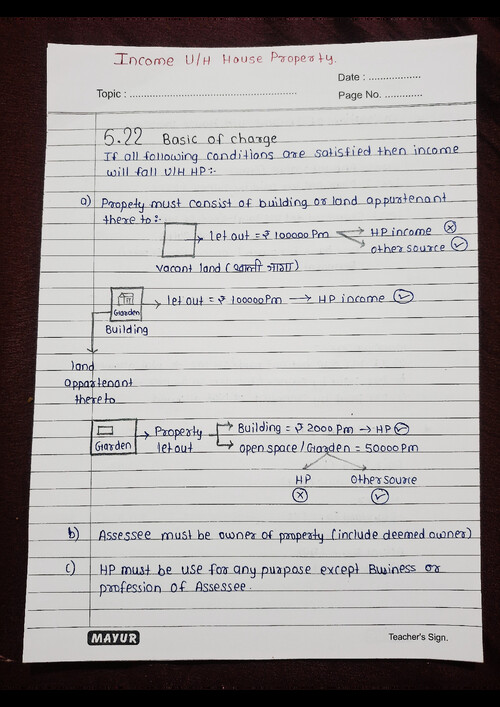 Income U/H House Property.
Date : ..................
Topic : ............................................................
Page No. .............
5.22 Basic of charge
If all following conditions are satisfied then income
will fall U/H HP:-
a) Propety must consist of building or land appurtenant
there to:-
let out = ₹ 100000 Pm → HP income ⓧ
other source ✓
vacant land (खाली जागा)
Garden → let out = ₹ 100000 Pm → HP income ✓
Building
land
appartenant
there to
Garden → Property let out → Building = ₹ 2000 Pm → HP ✓
→ open space / Garden = 50000 Pm
HP other source
ⓧ ✓
b) Assessee must be owner of property (include deemed owner)
c) HP must be use for any purpose except Business or
profession of Assessee.
MAYUR Teacher's Sign.